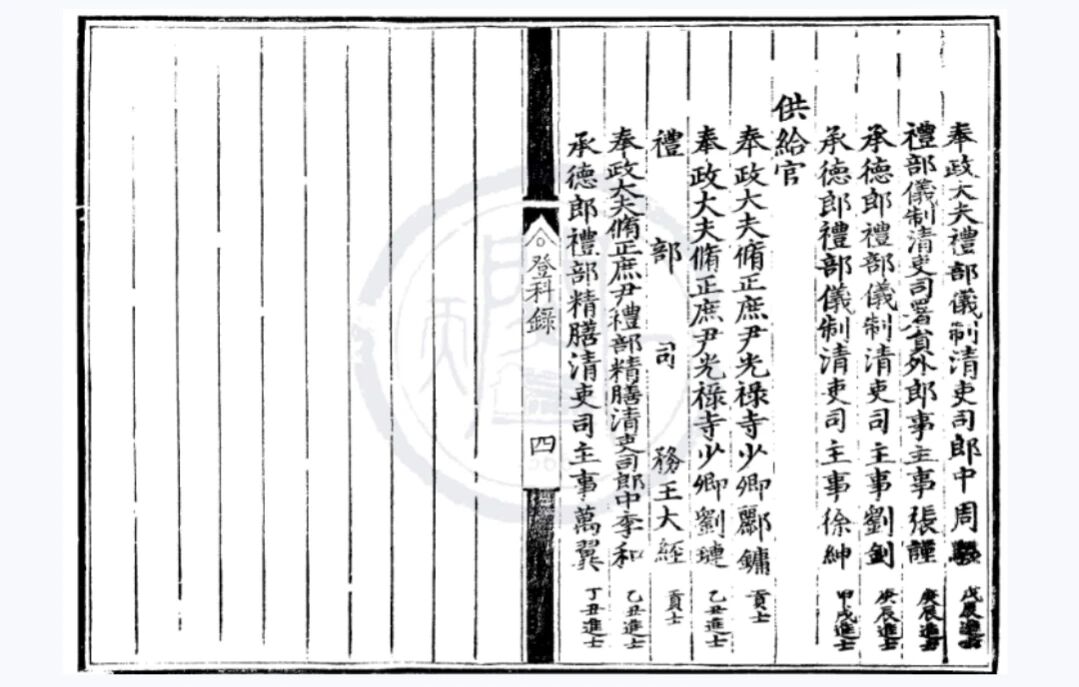 奉政大夫禮部儀制清吏司郎中周 戊辰進士
禮部儀制清吏司署員外郎事主事張謹 庚辰進士
承德郎禮部儀制清吏司主事劉釗 庚辰進士
承德郎禮部儀制清吏司主事徐紳 甲戌進士
供給官
奉政大夫脩正庶尹光祿寺少卿酈鏞 貢士
奉政大夫脩正庶尹光祿寺少卿劉璉 乙丑進士
禮部司務王大經 貢士
奉政大夫脩正庶尹禮部精膳清吏司郎中李和 乙丑進士
承德郎禮部精膳清吏司主事萬翼 丁丑進士
登科錄
四